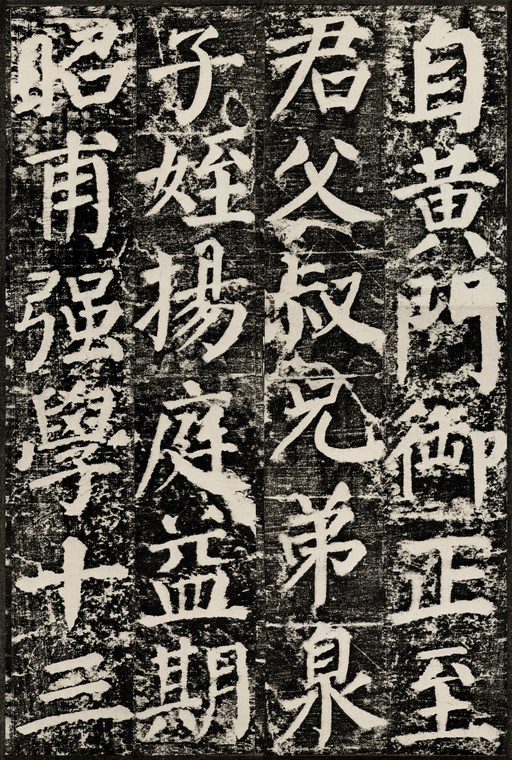 自黄門御正至
君父叔兄弟泉
子姪揚庭益期
昭甫强學十三